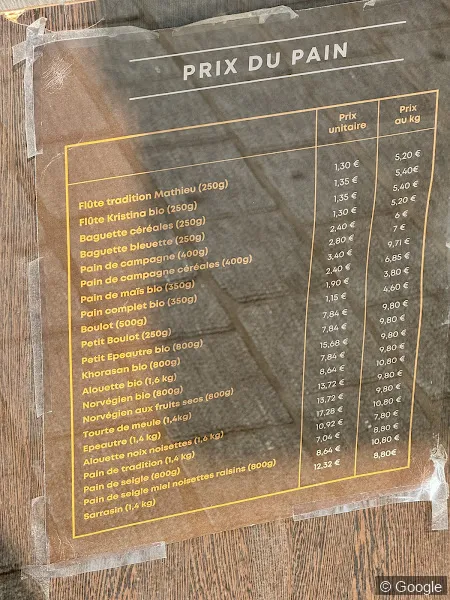 PRIX DU PAIN
Prix unitaire Prix au kg
Flûte tradition Mathieu (250g) 1,30 € 5,20 €
Flûte Kristina bio (250g) 1,35 € 5,40€
Baguette céréales (250g) 1,35 € 5,40 €
Baguette bleuette (250g) 1,30 € 5,20 €
Pain de campagne (400g) 2,40 € 6 €
Pain de campagne céréales (400g) 2,80 € 7 €
Pain de maïs bio (350g) 3,40 € 9,71 €
Pain complet bio (350g) 2,40 € 6,85 €
Boulot (500g) 1,90 € 3,80 €
Petit Boulot (250g) 1,15 € 4,60 €
Petit Epeautre bio (800g) 7,84 € 9,80 €
Khorasan bio (800g) 7,84 € 9,80 €
Alouette bio (1,6 kg) 15,68 € 9,80 €
Norvégien bio (800g) 7,84 € 9,80 €
Norvégien aux fruits secs (800g) 8,64 € 10,80 €
Tourte de meule (1,4kg) 13,72 € 9,80 €
Epeautre (1,4 kg) 13,72 € 9,80 €
Alouette noix noisettes (1,6 kg) 17,28 € 10,80 €
Pain de tradition (1,4 kg) 10,92 € 7,80 €
Pain de seigle (800g) 7,04 € 8,80 €
Pain de seigle miel noisettes raisins (800g) 8,64 € 10,80 €
Sarrasin (1,4 kg) 12,32 € 8,80€
© Google